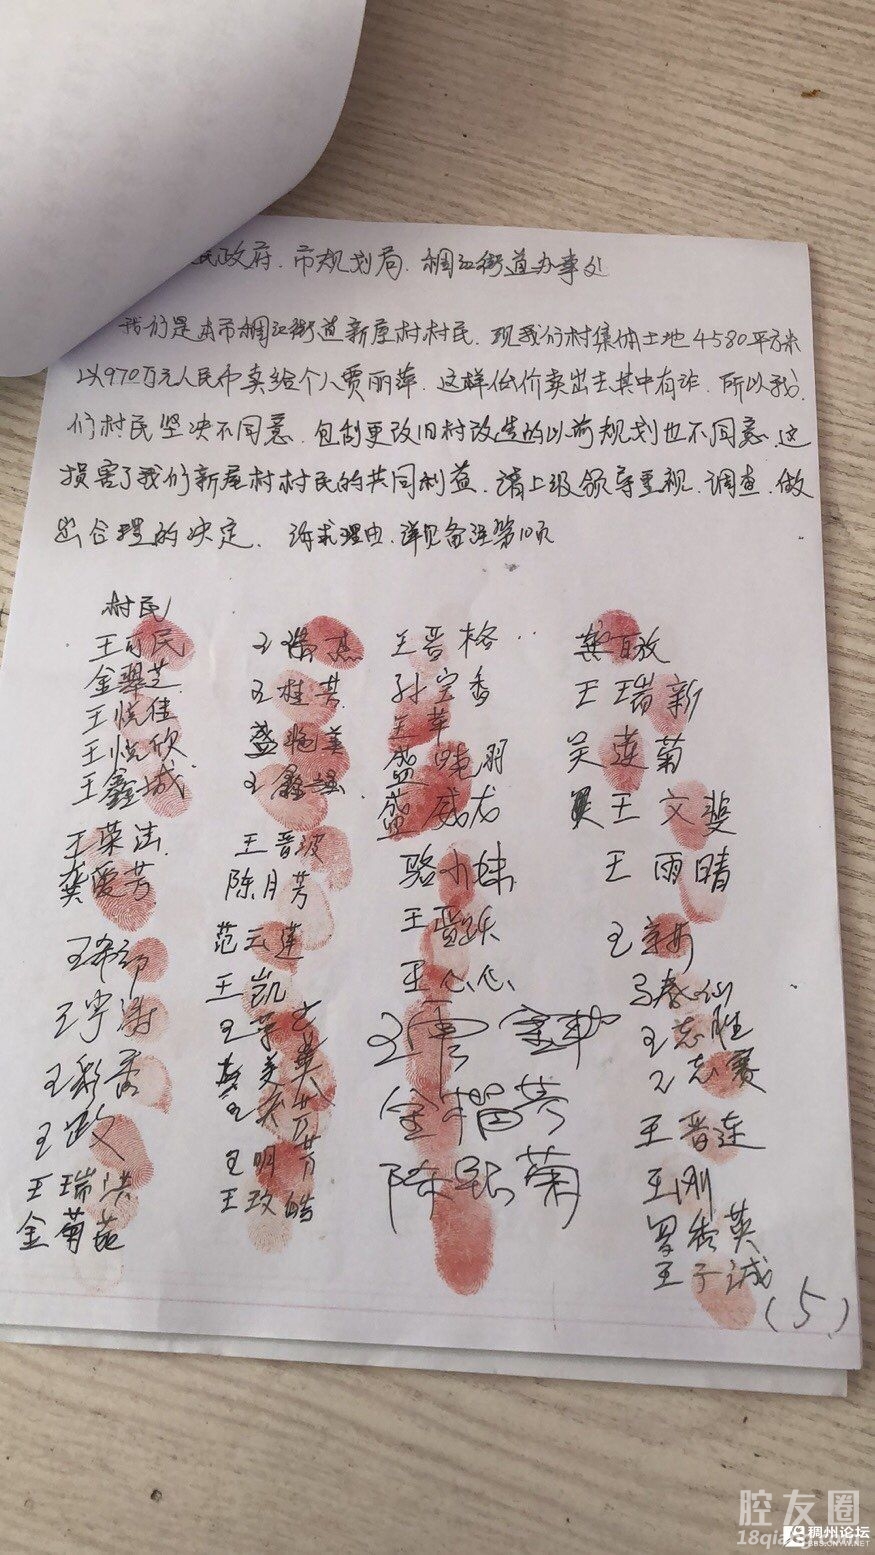 民政府.市规划局.稠江街道办事处
我们是本市稠江街道新屋村村民.现我们村集体土地4580平方米
以970万元人民币卖给个人贾丽萍.这样低价卖出去其中有诈.所以我
们村民坚决不同意.包刮更改旧村改造的以前规划也不同意.这
损害了我们新屋村村民的共同利益.请上级领导重视.调查.做
出合理的决定.诉求理由.详见备注第10页
村民
金翠芝
王悦佳
王悦欣
王鑫城
王荣法
龚爱芳
王宇浩
王彩香
王政
王瑞洪
金菊苑
王桂其
盛艳美
王晋波
陈月芳
范云莲
王凯
王明芳
王玫皓
王晋格
孙宝香
王苹
盛晓羽
盛威龙
骆小妹
王晋跃
王心心
陈银菊
龚百放
王瑞新
吴莲菊
王文斐
王雨晴
王志胜
王志赛
王晋连
王刚
王子诚
(5)
腔友圈
18qiang
稠州论坛
BBS.CNYW.NET